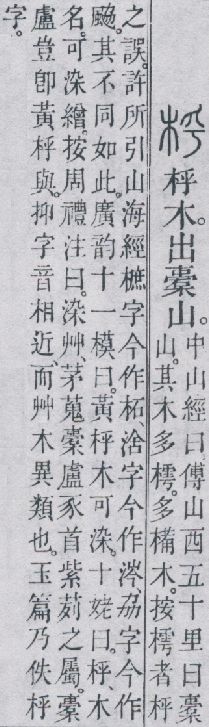 㭔木。出橐山。中山經曰。傅山西五十里曰橐
山。其木多樗。多㯡木。按樗者㭔
之誤。許所引山海經樜字今作柘涻字今作涔。劦字今作
䬅。其不同如此。廣韵十一模曰。黃㭔木可染。十姥曰。㭔、木
名。可染繒。按周禮注曰。染艸、茅蒐橐盧豕首紫茢之屬。橐
盧豈卽黃㭔與。抑字音相近而艸木異類也。玉篇乃佚㭔
字。